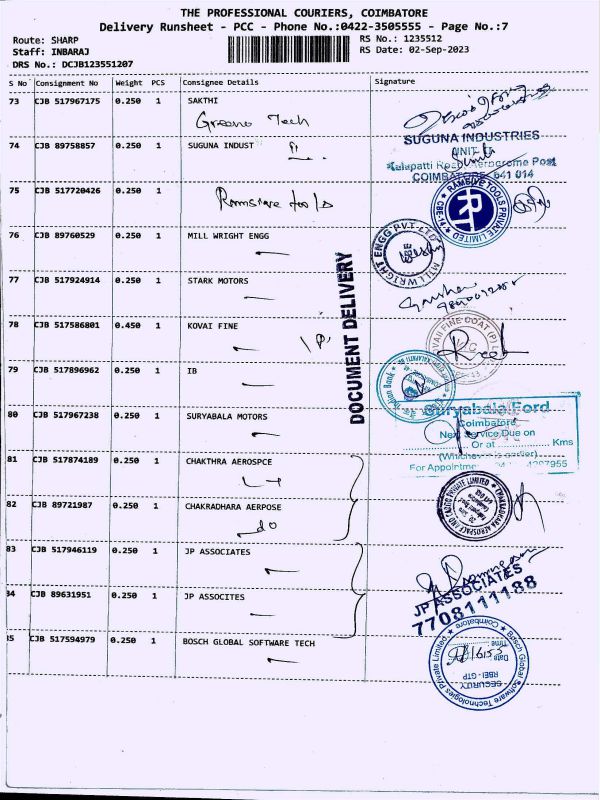 THE PROFESSIONAL COURIERS, COIMBATORE
Delivery Runsheet - PCC - Phone No.:0422-3505555 - Page No.:7
Route: SHARP
RS No.: 1235512
Staff: INBARAJ
RS Date: 02-Sep-2023
DRS No.: DCJB123551207
S No Consignment No Weight PCS Consignee Details Signature
73 CJB 517967175 0.250 1 SAKTHI
Greeno Tech
74 CJB 89758857 0.250 1 SUGUNA INDUST
SUGUNA INDUSTRIES
UNIT
Kalapatti Road Aerodrome Post
COIMBATORE 641 014
75 CJB 517720426 0.250 1
Ramsive tools
RAMSIVE TOOLS PRIVATE LIMITED
CBE-14
76 CJB 89760529 0.250 1 MILL WRIGHT ENGG
MILL WRIGHT ENGG PVT. LTD
77 CJB 517924914 0.250 1 STARK MOTORS
DOCUMENT DELIVERY
78 CJB 517586801 0.450 1 KOVAI FINE
KOVAI FINE COAT (P) L
79 CJB 517896962 0.250 1 IB
Indian Bank
80 CJB 517967238 0.250 1 SURYABALA MOTORS
Suryabala Ford
Coimbatore
Next Service Due on
Or at Kms
(Whichever is earlier)
For Appointme 4297955
81 CJB 517874189 0.250 1 CHAKTHRA AEROSPCE
82 CJB 89721987 0.250 1 CHAKRADHARA AERPOSE
do
CHAKRADHARA AEROSPACE AND CARGO PRIVATE LIMITED
83 CJB 517946119 0.250 1 JP ASSOCIATES
84 CJB 89631951 0.250 1 JP ASSOCITES
JP ASSOCIATES
7708111188
85 CJB 517594979 0.250 1 BOSCH GLOBAL SOFTWARE TECH
Bosch Global Software Technologies Private Limited
Coimbatore
Time
Date
RBEI - GTP
SECURITY